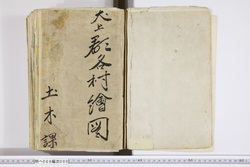 犬上郡各村繪図
土木課